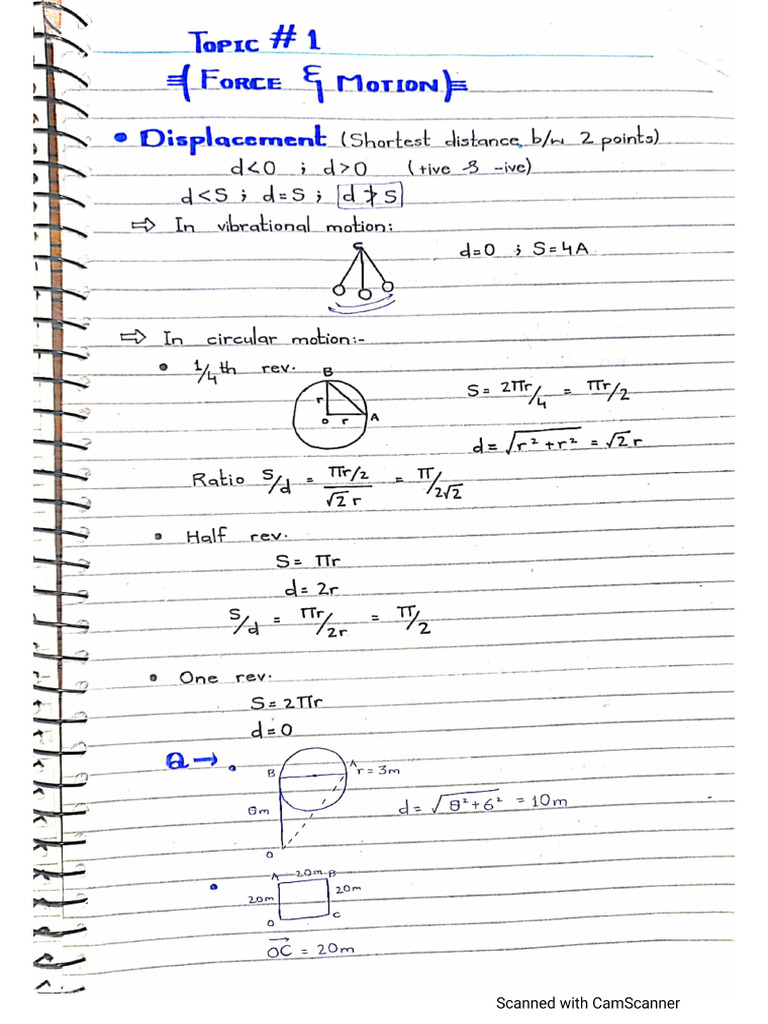 TOPIC # 1
=( FORCE & MOTION )=
• Displacement (Shortest distance b/w 2 points)
d<0 ; d>0 (+ive & -ive)
d<S ; d=S ; d≯S
⇒ In vibrational motion:
d=0 ; S=4A
⇒ In circular motion:-
• 1/4th rev.
B
r
o r A
S = 2πr/4 = πr/2
d = √r²+r² = √2r
Ratio S/d = πr/2 / √2 r = π/2√2
• Half rev.
S = πr
d = 2r
S/d = πr/2r = π/2
• One rev.
S = 2πr
d = 0
Q → •
B A r = 3m
8m
O
d = √8²+6² = 10m
• A 20m B
20m 20m
O C
OC = 20m
Scanned with CamScanner